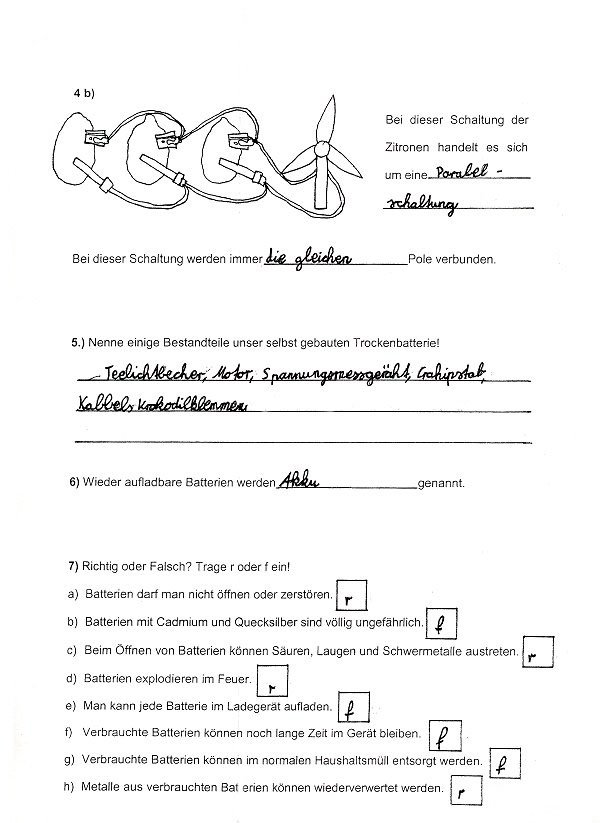 4 b)
Bei dieser Schaltung der
Zitronen handelt es sich
um eine Paralel -
schaltung
Bei dieser Schaltung werden immer die gleichen Pole verbunden.
5.) Nenne einige Bestandteile unser selbst gebauten Trockenbatterie!
Teelichtbecher, Motor, Spannungsmessgeräht, Grahipstab,
Kabbels Krokodilklemmen
6) Wieder aufladbare Batterien werden Akku genannt.
7) Richtig oder Falsch? Trage r oder f ein!
a) Batterien darf man nicht öffnen oder zerstören. r
b) Batterien mit Cadmium und Quecksilber sind völlig ungefährlich. f
c) Beim Öffnen von Batterien können Säuren, Laugen und Schwermetalle austreten. r
d) Batterien explodieren im Feuer. r
e) Man kann jede Batterie im Ladegerät aufladen. f
f) Verbrauchte Batterien können noch lange Zeit im Gerät bleiben. f
g) Verbrauchte Batterien können im normalen Haushaltsmüll entsorgt werden. f
h) Metalle aus verbrauchten Bat erien können wiederverwertet werden. r